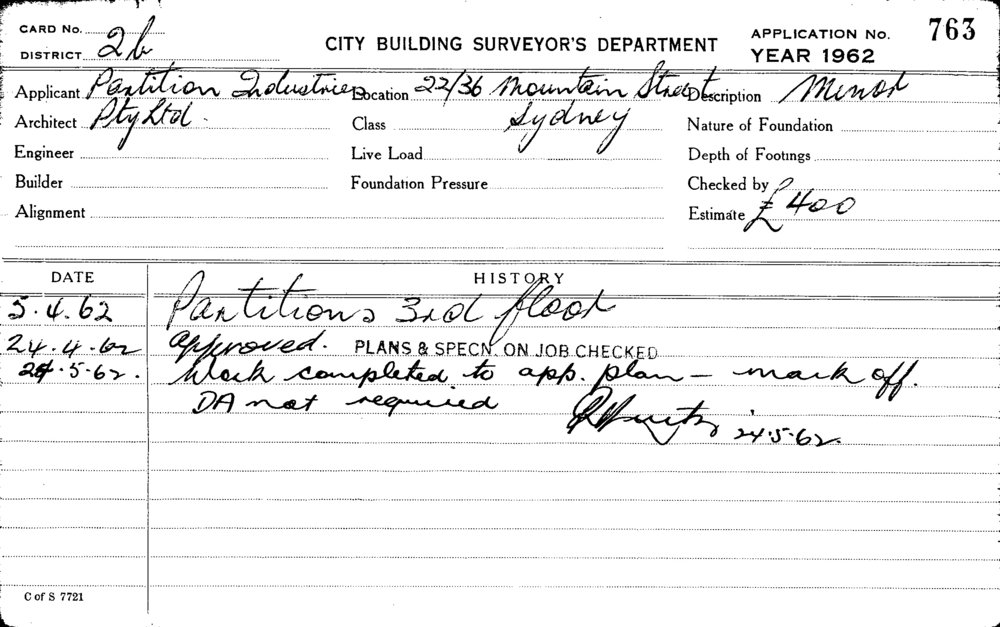 CARD No.
DISTRICT 2b
CITY BUILDING SURVEYOR'S DEPARTMENT
APPLICATION No. 763
YEAR 1962
Applicant Partition Industries Location 22/36 Mountain Street Description Minor
Architect Pty Ltd. Class Sydney Nature of Foundation
Engineer Live Load Depth of Footings
Builder Foundation Pressure Checked by
Alignment Estimate £400
DATE HISTORY
5.4.62 Partitions 3rd floor
24.4.62 approved. PLANS & SPECN. ON JOB CHECKED
24.5.62. Work completed to app. plan – mark off.
DA not required
24.5.62.
C of S 7721